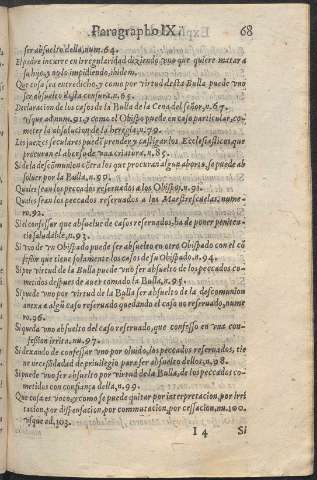 Paragrapho IX. 68
ser absuelto della, num. 64.
El padre incurre en irregularidad diziendo a vno que quiere matar a
su hijo, y no lo impidiendo, ibidem.
Que cosa sea entredicho, y como por virtud desta Bulla puede vno
ser absuelto desta censura, n. 65.
Declaracion de los casos de la Bulla de la Cena del señor, n. 67.
vsque ad num. 91. y como el Obispo puede en caso particular, co-
meter la absolucion de la heregia, n. 79.
Los juezes seculares puedē prender y castigar los Ecclesiasticos, que
procuran el aborso de vna criatura, n. 85.
Si de la descōmunion cōtra los que procuran algun aborso, se puede ab
soluer por la Bulla, n. 90.
Quales sean los peccados reseruados a los Obispos, n. 91.
Quales sean los peccados reseruados a los Maestrescuelas, nume-
ro, 92.
Si el confessor que absuelue de casos reseruados, ha de poner peniten-
cia saludable, n. 93.
Si vno de vn Obispado puede ser absuelto en otro Obispado con el cō
fessor que tiene solamente los casos de su Obispado. n. 94.
Si por virtud de la Bulla puede vno ser absuelto de los peccados co-
metidos despues de auer tomado la Bulla, n. 95.
Si puede vno por virtud de la Bulla ser absuelto de la descomunion
anexa a algū caso reseruado quedando el caso no reseruado, nume-
ro. 96.
Si queda vno absuelto del caso reseruado, que confesso en vna con-
fession irrita. nu. 97.
Si dexando de confessar vno por oluido, los peccados reseruados, tie
ne necessidad de priuilegio para ser absuelto dellos, n. 98.
Si puede vno ser absuelto por virtud de la Bulla, de los peccados co-
metidos con confiança della, n. 99.
Que cosa es voto, y como se puede quitar por interpretacion, por irri
tacion, por dispensacion, por commutacion, por cessacion, nu. 100.
vsque ad, 103.
I 4 Si